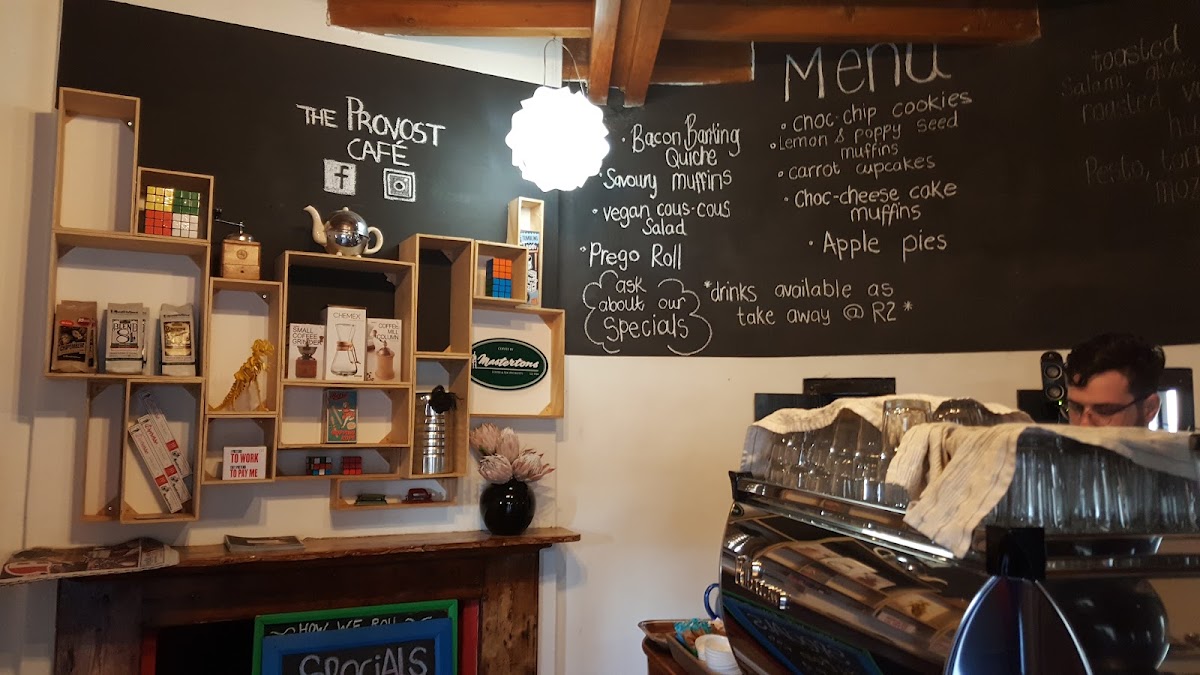 THE PROVOST
CAFÉ
f
Menu
• Bacon Banting
Quiche
• Savoury muffins
• vegan cous-cous
Salad
• Prego Roll
ask
about our
Specials
• choc-chip cookies
• Lemon & poppy seed
muffins
• carrot cupcakes
• Choc-cheese cake
muffins
• Apple pies
*drinks available as
take away @ R2 *
toasted
Salami,
roasted
Pesto,
SMALL
COFFEE
GRINDER
CHEMEX
COFFEE
MILL
COLUMN
Mastertons
TO WORK
TO PAY ME
HOW WE ROLL
SPECIALS